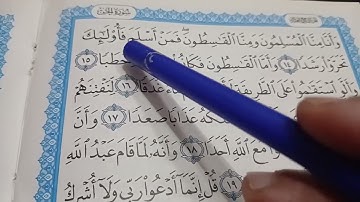 سورة الجن
وَأَنَّا مِنَّا الْمُسْلِمُونَ وَمِنَّا الْقَاسِطُونَ ۖ فَمَنْ أَسْلَمَ فَأُولَٰئِكَ
تَحَرَّوْا رَشَدًا ١٤ وَأَمَّا الْقَاسِطُونَ فَكَانُوا حَطَبًا ١٥
وَأَلَّوِ اسْتَقَامُوا عَلَى الطَّرِيقَةِ غَدَقًا ١٦ لِنَفْتِنَهُمْ
يَسْلُكْهُ عَذَابًا صَعَدًا ١٧ وَأَنَّ
مَعَ اللَّهِ أَحَدًا ١٨ وَأَنَّهُ لَمَّا قَامَ عَبْدُ اللَّهِ
١٩ قُلْ إِنَّمَا أَدْعُو رَبِّي وَلَا أُشْرِكُ